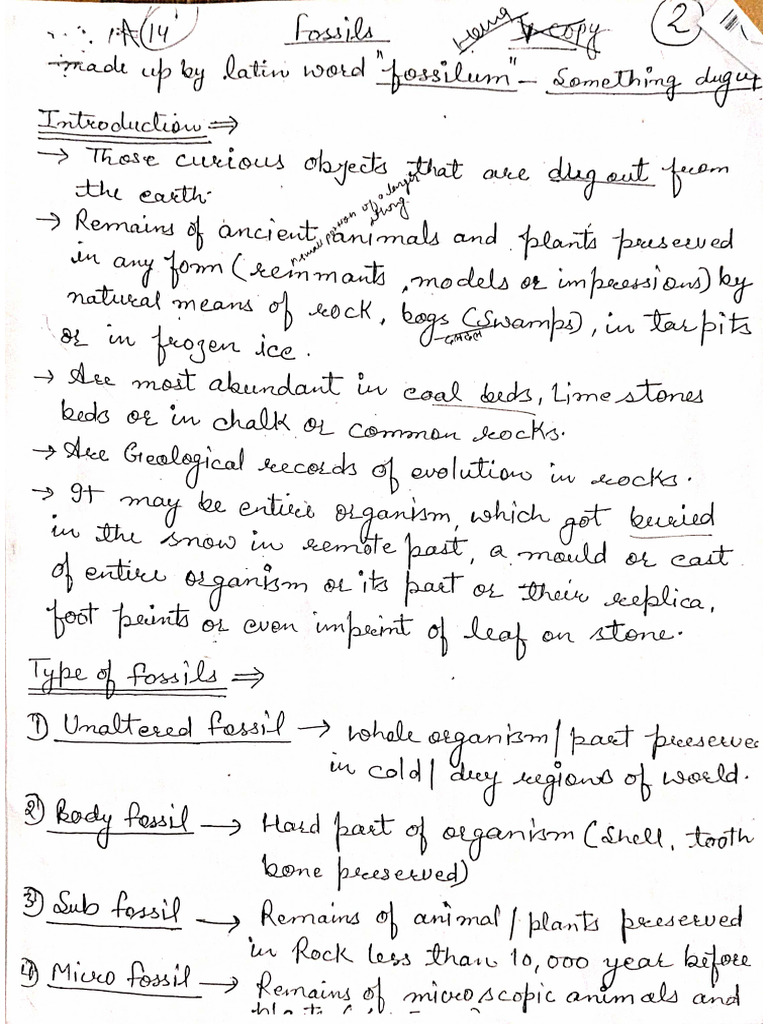 14 Fossils copy 2
made up by latin word "fossilum" - Something dugup
Introduction ⇒
→ Those curious objects that are dug out from
the earth.
→ Remains of ancient animals and plants preserved
small portion of a larger
thing
in any form (remmants, models or impressions) by
natural means of rock, bogs (Swamps), in tarpits
or in frozen ice.
→ Are most abundant in coal beds, Lime stones
beds or in chalk or common rocks.
→ Are Geological records of evolution in rocks.
→ It may be entire organism, which got buried
in the snow in remote past, a mould or cast
of entire organism or its part or their replica,
foot prints or even imprint of leaf on stone.
Type of fossils ⇒
1) Unaltered fossil → whole organism/part preserve
in cold/dry regions of world.
2) Body fossil → Hard part of organism (Shell, tooth
bone preserved)
3) Sub fossil → Remains of animal/plants preserved
in Rock less than 10,000 year before
4) Micro fossil → Remains of microscopic animals and